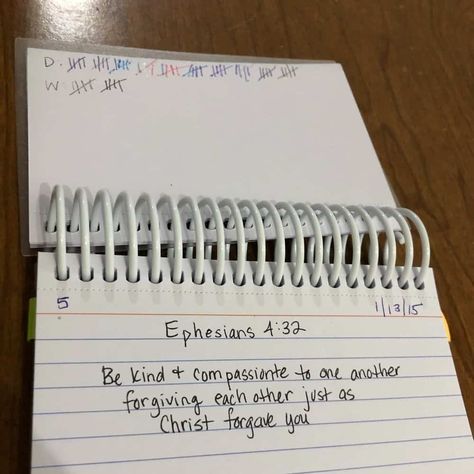 D.
W.
5 1/13/15
Ephesians 4:32
Be kind + compassionte to one another
forgiving each other just as
Christ forgave you